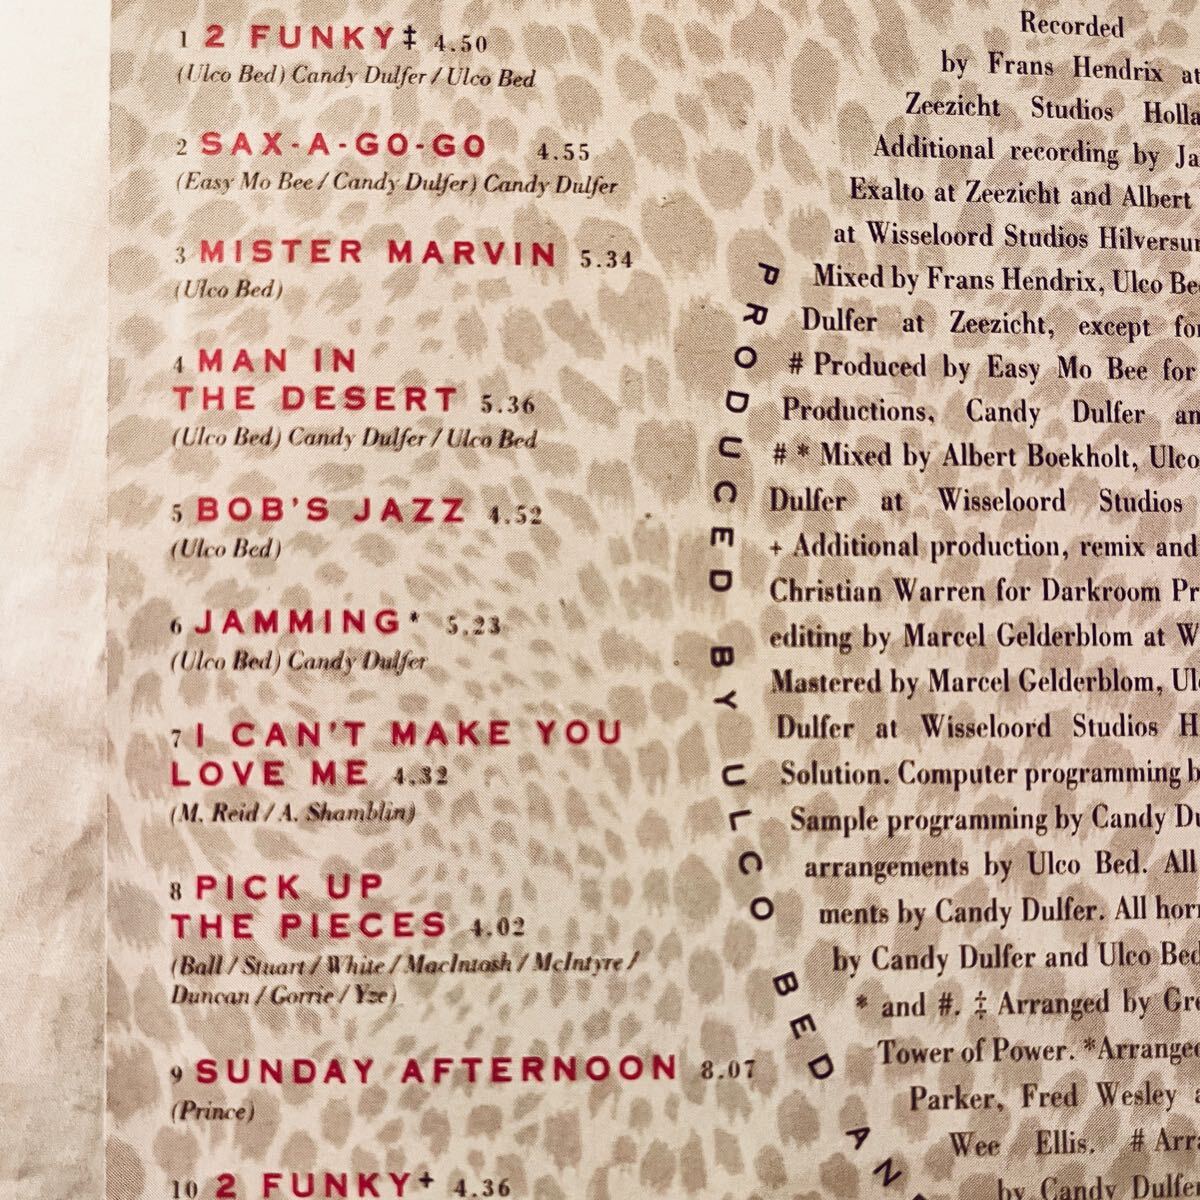 1 2 FUNKY‡ 4.50
(Ulco Bed) Candy Dulfer / Ulco Bed
2 SAX-A-GO-GO 4.55
(Easy Mo Bee / Candy Dulfer) Candy Dulfer
3 MISTER MARVIN 5.34
(Ulco Bed)
4 MAN IN
THE DESERT 5.36
(Ulco Bed) Candy Dulfer / Ulco Bed
5 BOB'S JAZZ 4.52
(Ulco Bed)
6 JAMMING* 5.23
(Ulco Bed) Candy Dulfer
7 I CAN'T MAKE YOU
LOVE ME 4.32
(M. Reid / A. Shamblin)
8 PICK UP
THE PIECES 4.02
(Ball / Stuart / White / MacIntosh / McIntyre /
Duncan / Gorrie / Yze)
9 SUNDAY AFTERNOON 8.07
(Prince)
10 2 FUNKY+ 4.36
PRODUCED BY ULCO BED AN
Recorded
by Frans Hendrix at
Zeezicht Studios Holla
Additional recording by Ja
Exalto at Zeezicht and Albert
at Wisseloord Studios Hilversu
Mixed by Frans Hendrix, Ulco Be
Dulfer at Zeezicht, except for
# Produced by Easy Mo Bee for
Productions, Candy Dulfer an
# * Mixed by Albert Boekholt, Ulco
Dulfer at Wisseloord Studios
+ Additional production, remix and
Christian Warren for Darkroom Pr
editing by Marcel Gelderblom at W
Mastered by Marcel Gelderblom, Ul
Dulfer at Wisseloord Studios H
Solution. Computer programming b
Sample programming by Candy Du
arrangements by Ulco Bed. All
ments by Candy Dulfer. All horn
by Candy Dulfer and Ulco Bed
* and #. ‡ Arranged by Gre
Tower of Power. *Arranged
Parker, Fred Wesley a
Wee Ellis. # Arra
by Candy Dulfe